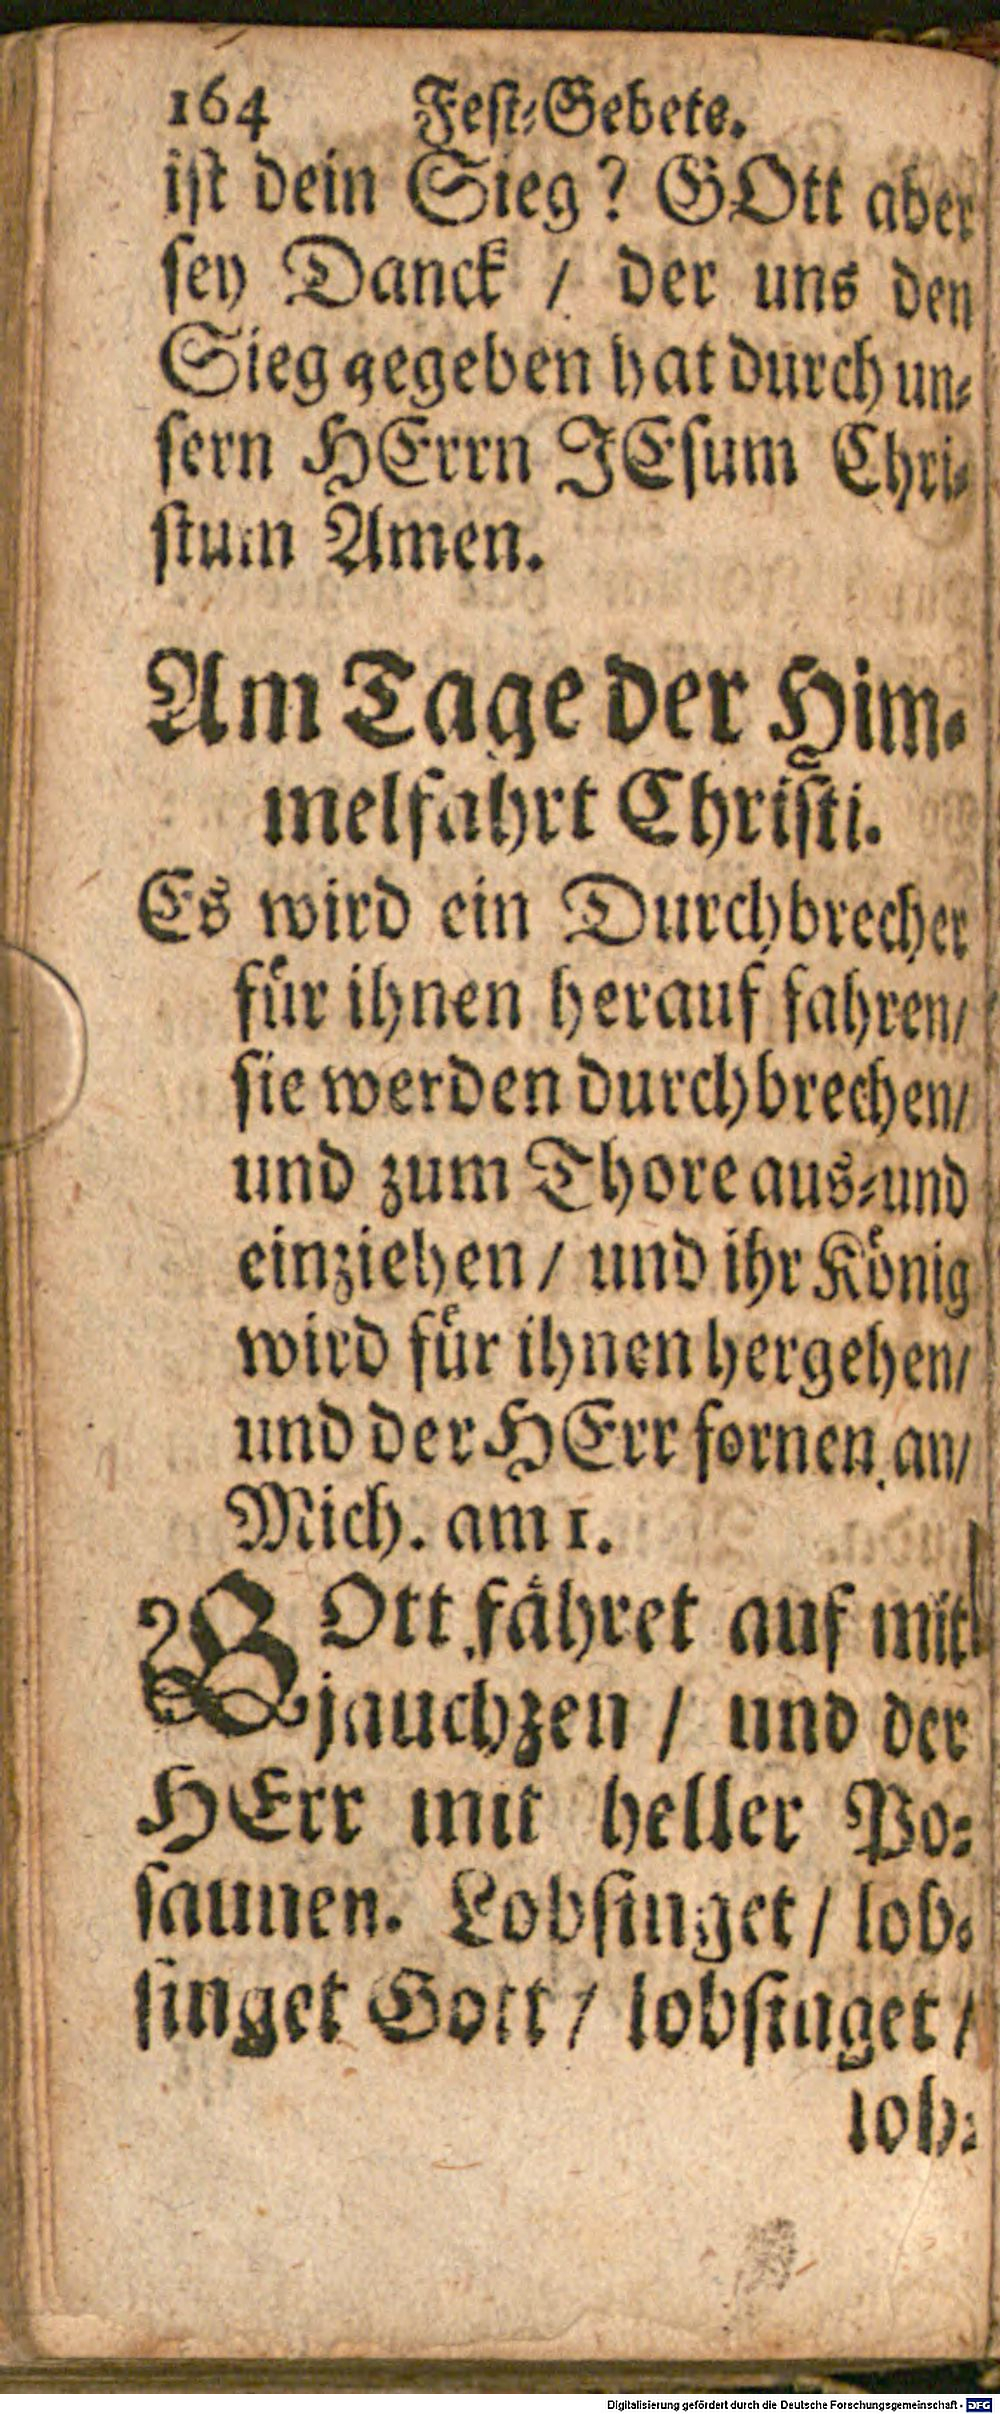 164 Fest-Gebete.
ist dein Sieg? GOtt aber
sey Danck / der uns den
Sieg gegeben hat durch un-
sern HErrn JEsum Chri-
stum Amen.
Am Tage der Him-
melfahrt Christi.
Es wird ein Durchbrecher
für ihnen herauf fahren/
sie werden durchbrechen/
und zum Thore aus-und
einziehen / und ihr König
wird für ihnen hergehen/
und der HErr fornen an/
Mich. am 1.
GOtt fähret auf mit
jauchzen / und der
HErr mit heller Po-
saunen. Lobsinget / lob-
singet Gott / lobsinget /
lob-
Digitalisierung gefördert durch die Deutsche Forschungsgemeinschaft - DFG